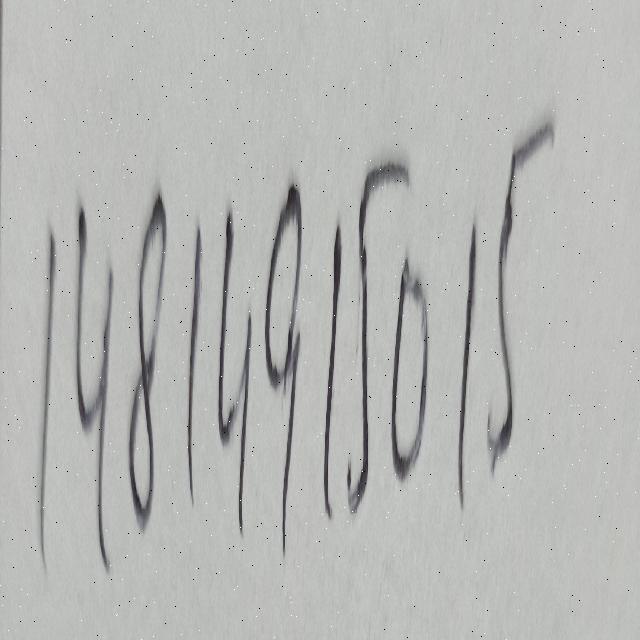 148 149 150 15